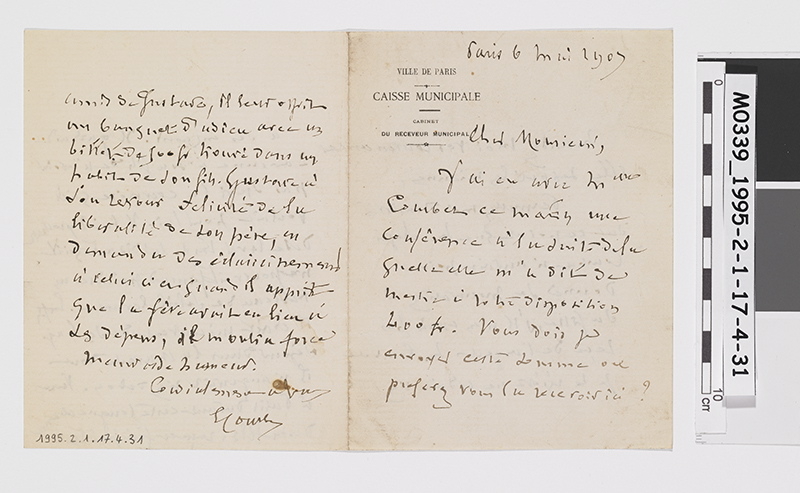 Paris 6 Mai 1907
VILLE DE PARIS
CAISSE MUNICIPALE
CABINET
DU RECEVEUR MUNICIPAL
Cher Monsieur,
J'ai eu avec Mme
ce matin une
Conférence à la suite de la
quelle elle m'a dit de
mettre à votre disposition
fr. Vous dois je
envoyer cette somme ou
préférez vous la recevoir ici ?
amis de Gustave, il leur offrit
un banquet d'adieu avec un
billet de trouvé dans un
habit de son fils. Gustave à
son retour félicité de la
libéralité de son père, en
demanda des éclaircissements
à celui ci et quand il apprit
que la fête avait eu lieu à
ses dépens, il montra force
mauvaise humeur.
Cordialement à vous
1995.2.1.17.4.31
M0339_1995-2-1-17-4-31
0
10
cm